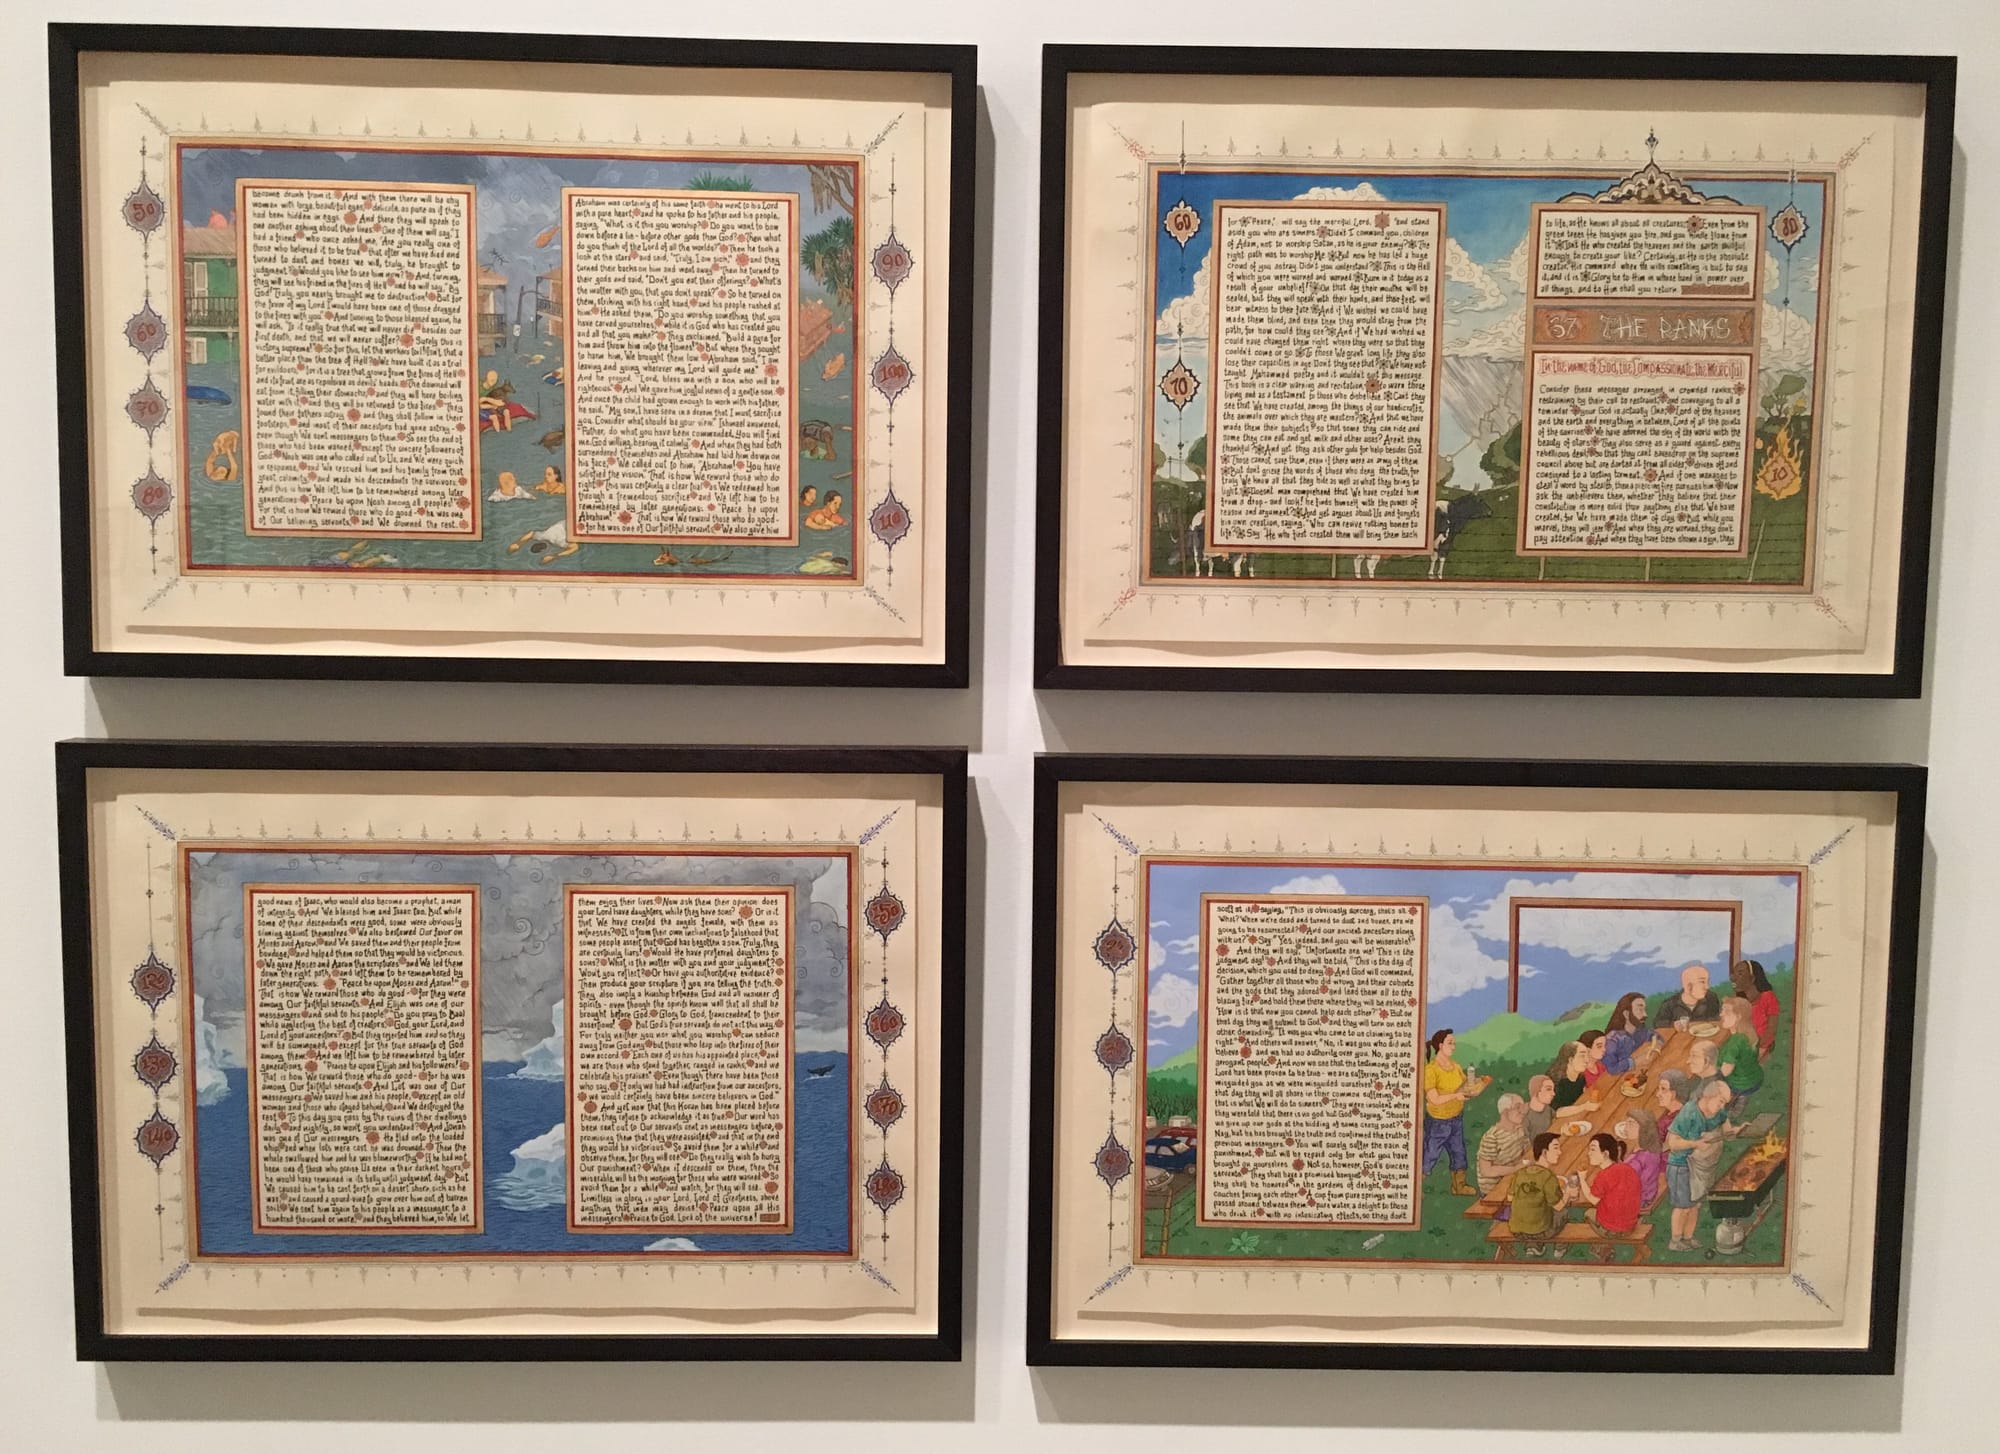 50
60
70
80
become drunk from it. And with them there will be shy
women with large, beautiful eyes, delicate, as pure as if they
had been hidden in eggs. And there they will speak to
one another asking about their lives. One of them will say, "I
had a friend who once asked me, 'Are you really one of
those who believed it to be true that after we have died and
turned to dust and bones we will, truly, be brought to
judgment? Would you like to see him now?' And, turning,
they will see his friend in the fires of Hell and he will say, "By
God! Truly, you nearly brought me to destruction! But for
the favor of my Lord I would have been one of those dragged
to the fires with you." And turning to those blessed again, he
will ask, "Is it really true that we will never die besides our
first death, and that we will never suffer? Surely this is
victory supreme!" So for this, let the workers toil! Isn't that a
better place than the tree of Hell? We have built it as a trial
for evildoers, for it is a tree that grows from the fires of Hell
and its fruit are as repulsive as devils' heads. The damned will
eat from it, filling their stomachs, and they will have boiling
water with it and they will be returned to the fires. They
found their fathers astray and they shall follow in their
footsteps, and most of their ancestors had gone astray -
even though We sent messengers to them. So see the end of
those who had been warned, except the sincere followers of
God. Noah was one who called out to Us, and We were quick
in response, and We rescued him and his family from that
great calamity and made his descendants the survivors.
And this is how We left him to be remembered among later
generations. "Peace be upon Noah among all peoples!"
For that is how We reward those who do good - he was one
of Our believing servants, and We drowned the rest.
Abraham was certainly of his same faith he went to his Lord
with a pure heart, and he spoke to his father and his people,
saying, "What is it this you worship? Do you want to bow
down before a lie - before other gods than God? Then what
do you think of the Lord of all the worlds?" Then he took a
look at the stars and said, "Truly, I am sick," and they
turned their backs on him and went away. Then he turned to
their gods and said, "Don't you eat their offerings? What's
the matter with you, that you don't speak?" So he turned on
them, striking with his right hand, and his people rushed at
him. He asked them, "Do you worship something that you
have carved yourselves, while it is God who has created you
and all that you make?" They exclaimed, "Build a pyre for
him and throw him into the flames!" But where they sought
to harm him, We brought them low. Abraham said, "I am
leaving and going wherever my Lord will guide me."
And he prayed, "Lord, bless me with a son who will be
righteous." And We gave him joyful news of a gentle son.
And once the child had grown enough to work with his father,
he said, "My son, I have seen in a dream that I must sacrifice
you. Consider what should be your view." Ishmael answered,
"Father, do what you have been commanded. You will find
me, God willing, bearing it calmly." And when they had both
surrendered themselves and Abraham had laid him down on
his face, We called out to him, "Abraham! You have
satisfied the vision." That is how We reward those who do
right. This was certainly a clear trial as We redeemed him
through a tremendous sacrifice and We left him to be
remembered by later generations: "Peace be upon
Abraham!" That is how We reward those who do good -
for he was one of Our faithful servants. We also gave him
90
100
110
60
70
for. "Peace," will say the merciful Lord, "and stand
aside you who are sinners. Didn't I command you, children
of Adam, not to worship Satan, as he is your enemy? The
right path was to worship Me. But now he has led a huge
crowd of you astray. Didn't you understand? This is the Hell
of which you were warned and warned. Burn in it today as a
result of your unbelief!" On that day their mouths will be
sealed, but they will speak with their hands, and their feet will
bear witness to their fate. And if We wished We could have
made them blind, and even then they would stray from the
path, for how could they see? And if We had wished we
could have changed them right where they were so that they
couldn't come or go. To those We grant long life they also
lose their capacities in age. Don't they see that? We have not
taught Mohammed poetry and it wouldn't suit his message.
This book is a clear warning and recitation to warn those
living and as a testament to those who disbelieve. Can't they
see that We have created, among the things of our handicrafts,
the animals over which they are masters? And that we have
made them their subjects so that some they can ride and
some they can eat and get milk and other uses? Aren't they
thankful? And yet they ask other gods for help besides God.
Those cannot save them, even if there were an army of them
But don't grieve the words of those who deny the truth, for
truly We know all that they hide as well as what they bring to
light. Doesn't man comprehend that We have created him
from a drop - and look! he finds himself with the power of
reason and argument? And yet argues about Us and forgets
his own creation, saying, "Who can revive rotting bones to
life? Say: He who first created them will bring them back
to life, as He knows all about all creatures. Even from the
green trees He has given you fire, and you kindle flame from
it. Isn't He who created the heavens and the earth skillful
enough to create your like? Certainly, as He is the absolute
creator. His command when He wills something is but to say
it, and it is. Glory be to Him in whose hand is power over
all things, and to Him shall you return.
37 THE RANKS
In the name of God, the Compassionate the Merciful
Consider these messages arranged, in crowded ranks,
restraining by their call to restraint, and conveying to all a
reminder your God is actually One, Lord of the heavens
and the earth and everything in between, Lord of all the points
of the sunrise. We have adorned the sky of the world with the
beauty of stars. They also serve as a guard against every
rebellious devil so that they can't eavesdrop on the supreme
council above but are darted at from all sides, driven off and
consigned to a lasting torment. And if one manages to
steal a word by stealth, then a piercing fire pursues him. Now
ask the unbelievers them, whether they believe that their
constitution is more solid than anything else that We have
created, for We have made them of clay. But while you
marvel, they will jeer. And when they are warned, they don't
pay attention. And when they have been shown a sign, they
80
10
120
130
140
good news of Isaac, who would also become a prophet, a man
of integrity. And We blessed him and Isaac too. But while
some of their descendants were good, some were obviously
sinning against themselves. We also bestowed Our favor on
Moses and Aaron, and We saved them and their people from
bondage, and helped them so that they would be victorious.
We gave Moses and Aaron the scripture, and We led them
down the right path, and left them to be remembered by
later generations: "Peace be upon Moses and Aaron!"
That is how We reward those who do good - for they were
among Our faithful servants. And Elijah was one of our
messengers and said to his people, "Do you pray to Baal
while neglecting the best of creators, God, your Lord, and
Lord of your ancestors? But they rejected him and so they
will be summoned, except for the true servants of God
among them. And we left him to be remembered by later
generations, "Peace be upon Elijah and his followers!"
That is how We reward those who do good - for he was
among Our faithful servants. And Lot was one of Our
messengers. We saved him and his people, except an old
woman and those who stayed behind, and We destroyed the
rest. To this day you pass by the ruins of their dwellings
daily and nightly, so won't you understand? And Jonah
was one of Our messengers. He fled onto the loaded
ship, and when lots were cast he was doomed. Then the
whale swallowed him and he was blameworthy. If he had not
been one of those who praise Us even in their darkest hours,
he would have remained in its belly until judgment day. But
We caused him to be cast forth on a desert shore, sick as he
was, and caused a gourd-vine to grow over him out of barren
soil. We sent him again to his people as a messenger, to a
hundred thousand or more, and they believed him, so We let
them enjoy their lives. Now ask them their opinion: does
your Lord have daughters, while they have sons? Or is it
that We have created the angels female, with them as
witnesses? It is from their own inclinations to falsehood that
some people assert that God has begotten a son. Truly, they
are certainly liars! Would He have preferred daughters to
sons? What is the matter with you and your judgment?
Won't you reflect? Or have you authoritative evidence?
Then produce your scripture if you are telling the truth.
They also imply a kinship between God and all manner of
spirits - even though the spirits know well that all shall be
brought before God. Glory to God, transcendent to their
assertions! But God's true servants do not act this way.
For truly neither you nor what you worship can seduce
away from God any but those who leap into the fires of their
own accord. Each one of us has his appointed place, and
we are those who stand together, ranged in ranks, and we
celebrate his praises." Even though there have been those
who say, "If only we had had instruction from our ancestors,
we would certainly have been sincere believers in God."
And yet now that this Koran has been placed before
them, they refuse to acknowledge it as true. Our word has
been sent out to Our servants sent as messengers before,
promising them that they were assisted, and that in the end
they would be victorious. So avoid them for a while and
observe them, for they will see. Do they really wish to hurry
Our punishment? When it descends on them, then the
miserable, will be the morning for those who were warned. So
avoid them for a while and watch, for they will see.
Limitless in glory is your Lord, Lord of Greatness, above
anything that men may devise! Peace upon all His
messengers! Praise to God, Lord of the universe!
150
160
170
180
20
30
40
scoff at it saying, "This is obviously sorcery, that's all.
What? When we're dead and turned to dust and bones, are we
going to be resurrected? And our ancient ancestors along
with us?" Say: "Yes, indeed, and you will be miserable!"
And they will say, "Unfortunate are we! This is the
judgment day!" And they will be told, "This is the day of
decision, which you used to deny. And God will command,
"Gather together all those who did wrong and their cohorts
and the gods that they adored and lead them all to the
blazing fire and hold them there where they will be asked,
'How is it that now you cannot help each other?'" But on
that day they will submit to God, and they will turn on each
other demanding, "It was you who came to us claiming to be
right!" And others will answer, "No, it was you who did not
believe and we had no authority over you. No, you are
arrogant people. And now we see that the testimony of our
Lord has been proven to be true - we are suffering for it! We
misguided you as we were misguided ourselves!" And on
that day they will all share in their common suffering, for
that is what We will do to sinners. They were insolent when
they were told that there is no god but God saying, "Should
we give up our gods at the bidding of some crazy poet?"
Nay, but he has brought the truth and confirmed the truth of
previous messengers. You will surely suffer the pain of
punishment, but will be repaid only for what you have
brought on yourselves. Not so, however, God's sincere
servants. They shall have a promised banquet of fruits, and
they shall be honored in the gardens of delight, upon
couches facing each other. A cup from pure springs will be
passed around between them, pure water, a delight to those
who drink it with no intoxicating effects, so they don't